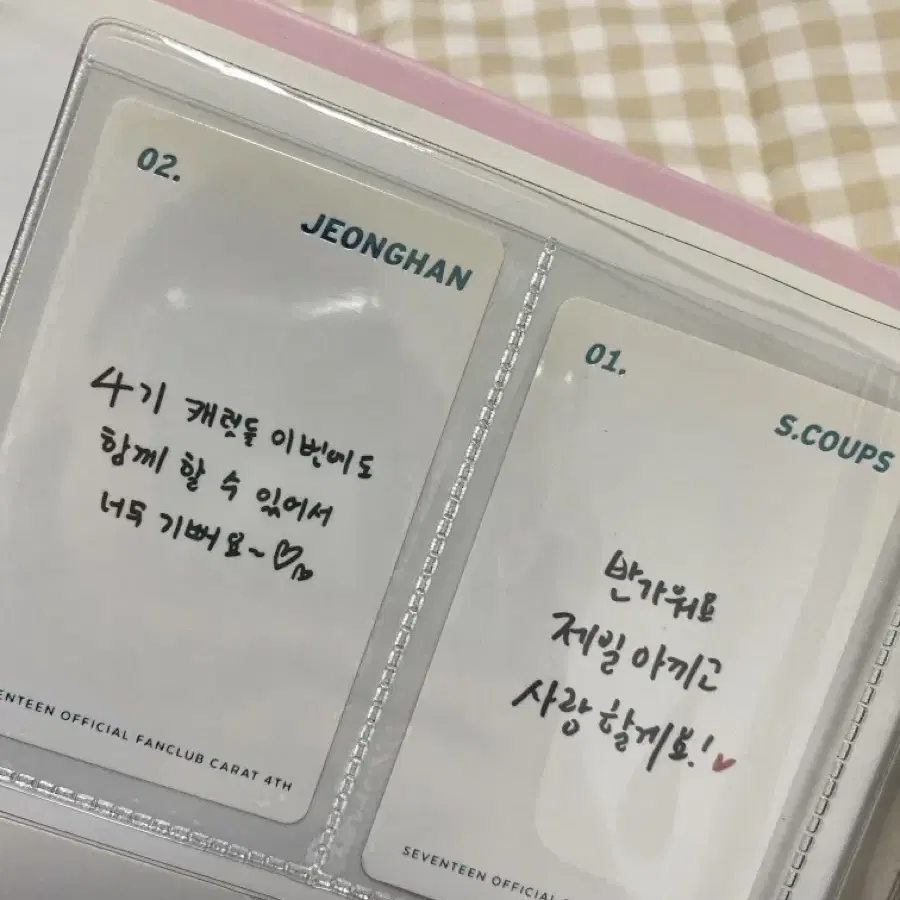 02.
JEONGHAN
4기 캐럿들 이번에도
함께 할 수 있어서
너무 기뻐요~♡♡
SEVENTEEN OFFICIAL FANCLUB CARAT 4TH
01.
S.COUPS
반가워요
제일 아끼고
사랑할게요!♥
SEVENTEEN OFFICIAL